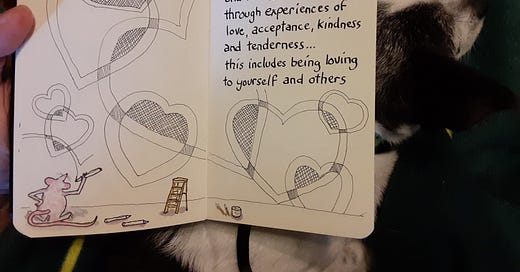 through experiences of
love, acceptance, kindness
and tenderness...
this includes being loving
to yourself and others